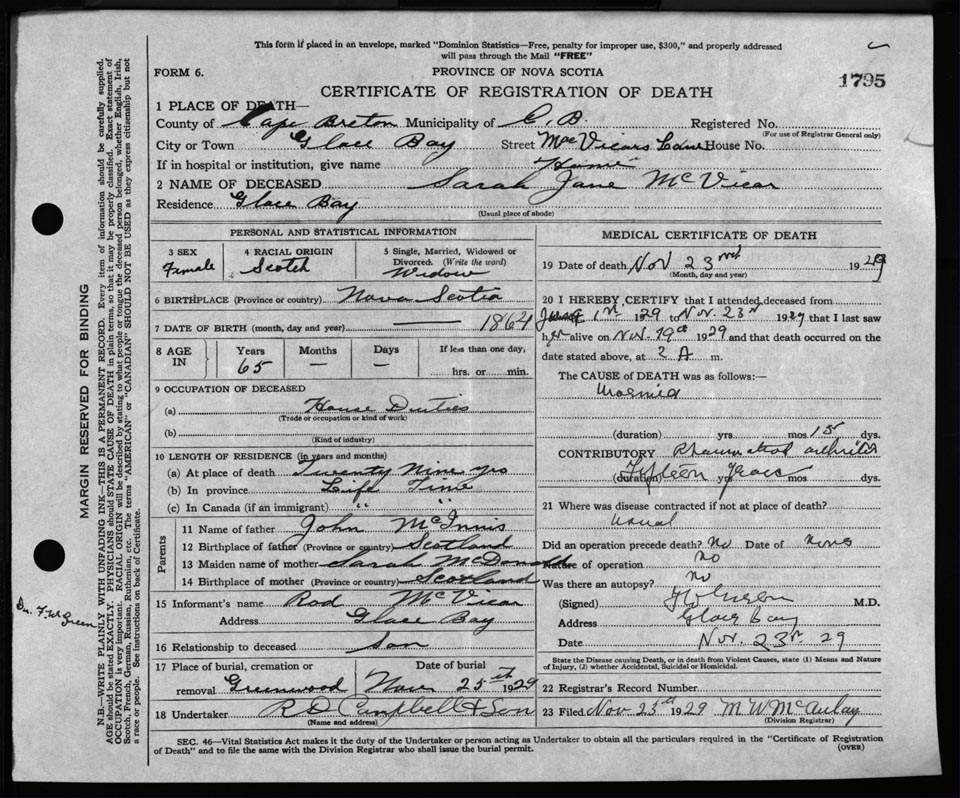 This form if placed in an envelope, marked "Dominion Statistics—Free, penalty for improper use, $300," and properly addressed
will pass through the Mail "FREE"
FORM 6.
PROVINCE OF NOVA SCOTIA
1795
CERTIFICATE OF REGISTRATION OF DEATH
1 PLACE OF DEATH—
County of Cape Breton Municipality of C.B. Registered No.
(For use of Registrar General only)
City or Town Glace Bay Street MacVicars Lane House No.
If in hospital or institution, give name Home
2 NAME OF DECEASED Sarah Jane McVicar
Residence Glace Bay
(Usual place of abode)
PERSONAL AND STATISTICAL INFORMATION
3 SEX Female
4 RACIAL ORIGIN Scotch
5 Single, Married, Widowed or Divorced. (Write the word) Widow
6 BIRTHPLACE (Province or country) Nova Scotia
7 DATE OF BIRTH (month, day and year) — 1864
8 AGE IN Years 65 Months — Days — If less than one day, hrs. or min.
9 OCCUPATION OF DECEASED
(a) House Duties
(Trade or occupation or kind of work)
(b)
(Kind of industry)
10 LENGTH OF RESIDENCE (in years and months)
(a) At place of death Twenty Nine yrs
(b) In province Life Time
(c) In Canada (if an immigrant) " "
Parents
11 Name of father John McInnis
12 Birthplace of father (Province or country) Scotland
13 Maiden name of mother Sarah McDonald
14 Birthplace of mother (Province or country) Scotland
15 Informant's name Rod McVicar
Address Glace Bay
16 Relationship to deceased Son
17 Place of burial, cremation or removal Greenwood
Date of burial Nov 25th 1929
18 Undertaker R D Campbell & Son
(Name and address)
MEDICAL CERTIFICATE OF DEATH
19 Date of death Nov 23rd 1929
(Month, day and year)
20 I HEREBY CERTIFY that I attended deceased from
1st 129 to Nov. 23rd 1929 that I last saw
her alive on Nov. 19th 1929 and that death occurred on the
date stated above, at 2 A m.
The CAUSE OF DEATH was as follows:—
Uraemia
(duration) yrs. mos 15 dys.
CONTRIBUTORY Rheumatoid arthritis
Fifteen years
(duration) yrs. mos dys.
21 Where was disease contracted if not at place of death?
usual
Did an operation precede death? No Date of None
Nature of operation No
Was there an autopsy? No
(Signed) M.D.
Address Glace Bay
Date Nov. 23rd 29
State the Disease causing Death, or in death from Violent Causes, state (1) Means and Nature
of Injury, (2) whether Accidental, Suicidal or Homicidal.
22 Registrar's Record Number
23 Filed Nov 23rd 1929 M W McAulay
(Division Registrar)
SEC. 46—Vital Statistics Act makes it the duty of the Undertaker or person acting as Undertaker to obtain all the particulars required in the "Certificate of Registration
of Death" and to file the same with the Division Registrar who shall issue the burial permit.
(OVER)
MARGIN RESERVED FOR BINDING
N.B.—WRITE PLAINLY WITH UNFADING INK—THIS IS A PERMANENT RECORD. Every item of information should be carefully supplied.
AGE should be stated EXACTLY. PHYSICIANS should STATE CAUSE OF DEATH in plain terms, so that it may be properly classified. Exact statement of
OCCUPATION is very important. RACIAL ORIGIN will be described by stating to what people or tongue the deceased person belonged, whether English, Irish,
Scotch, French, German, Russian, Ruthenian, etc. The terms "AMERICAN" or "CANADIAN" SHOULD NOT BE USED as they express citizenship but not
a race or people. See instructions on back of Certificate.
Dr. F.W Green